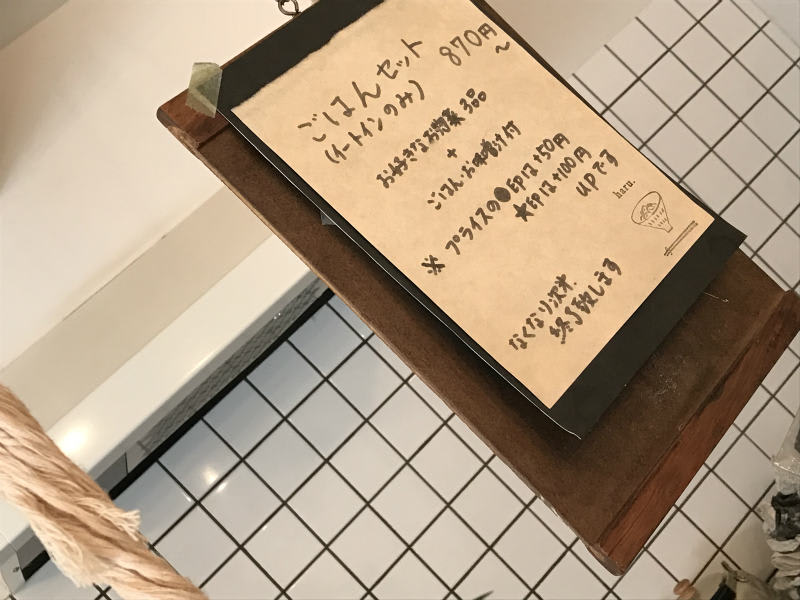 ごはんセット 870円〜
(イートインのみ)
お好きなお惣菜 3品
+
ごはん・お味噌汁付
※ プライスの●印は+50円
★印は+100円
UPです
haru.
なくなり次第
終了致します